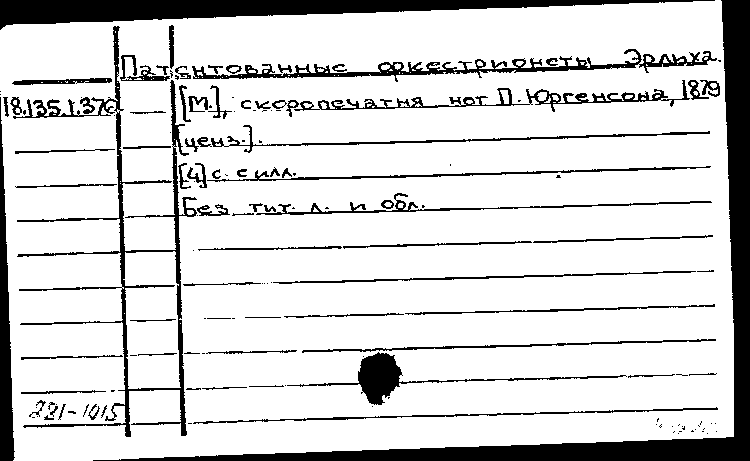 Патентованные оркестрионеты Эрлыха.
18.135.1.376 [М.], скоропечатня нот П. Юргенсона, 1879
[ценз.].
[4] с. с илл.
Без тит. л. и обл.
221-1015